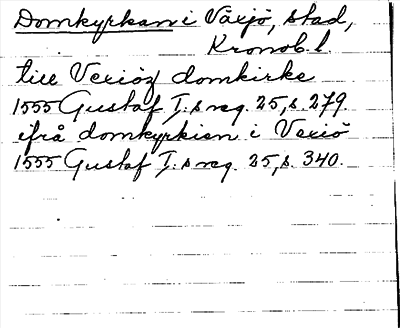 Domkyrkan i Växjö, stad,
Kronob. l
till Vexiöz domkirke
1555 Gustaf I:s reg. 25, s. 279
ifrå domkyrkien i Vexiö
1555 Gustaf I:s reg. 25, s. 340.